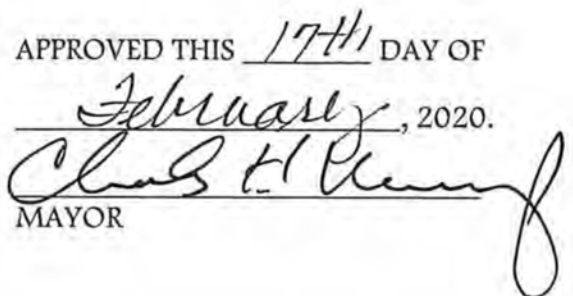 APPROVED THIS 17TH DAY OF
February, 2020.
MAYOR